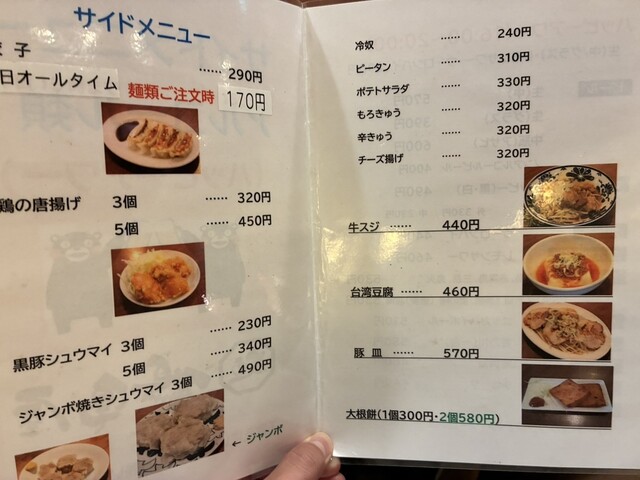 サイドメニュー
餃子
‥‥‥ 290円
日オールタイム 麺類ご注文時 170円
鶏の唐揚げ 3個 ‥‥‥ 320円
5個 ‥‥‥ 450円
黒豚シュウマイ 3個 ‥‥‥ 230円
5個 ‥‥‥ 340円
ジャンボ焼きシュウマイ 3個 ‥‥‥ 490円
← ジャンボ
冷奴 ‥‥‥ 240円
ピータン ‥‥‥ 310円
ポテトサラダ ‥‥‥ 330円
もろきゅう ‥‥‥ 320円
辛きゅう ‥‥‥ 320円
チーズ揚げ ‥‥‥ 320円
牛スジ ‥‥‥ 440円
台湾豆腐 ‥‥‥ 460円
豚皿 ‥‥‥ 570円
大根餅(1個300円・2個580円)